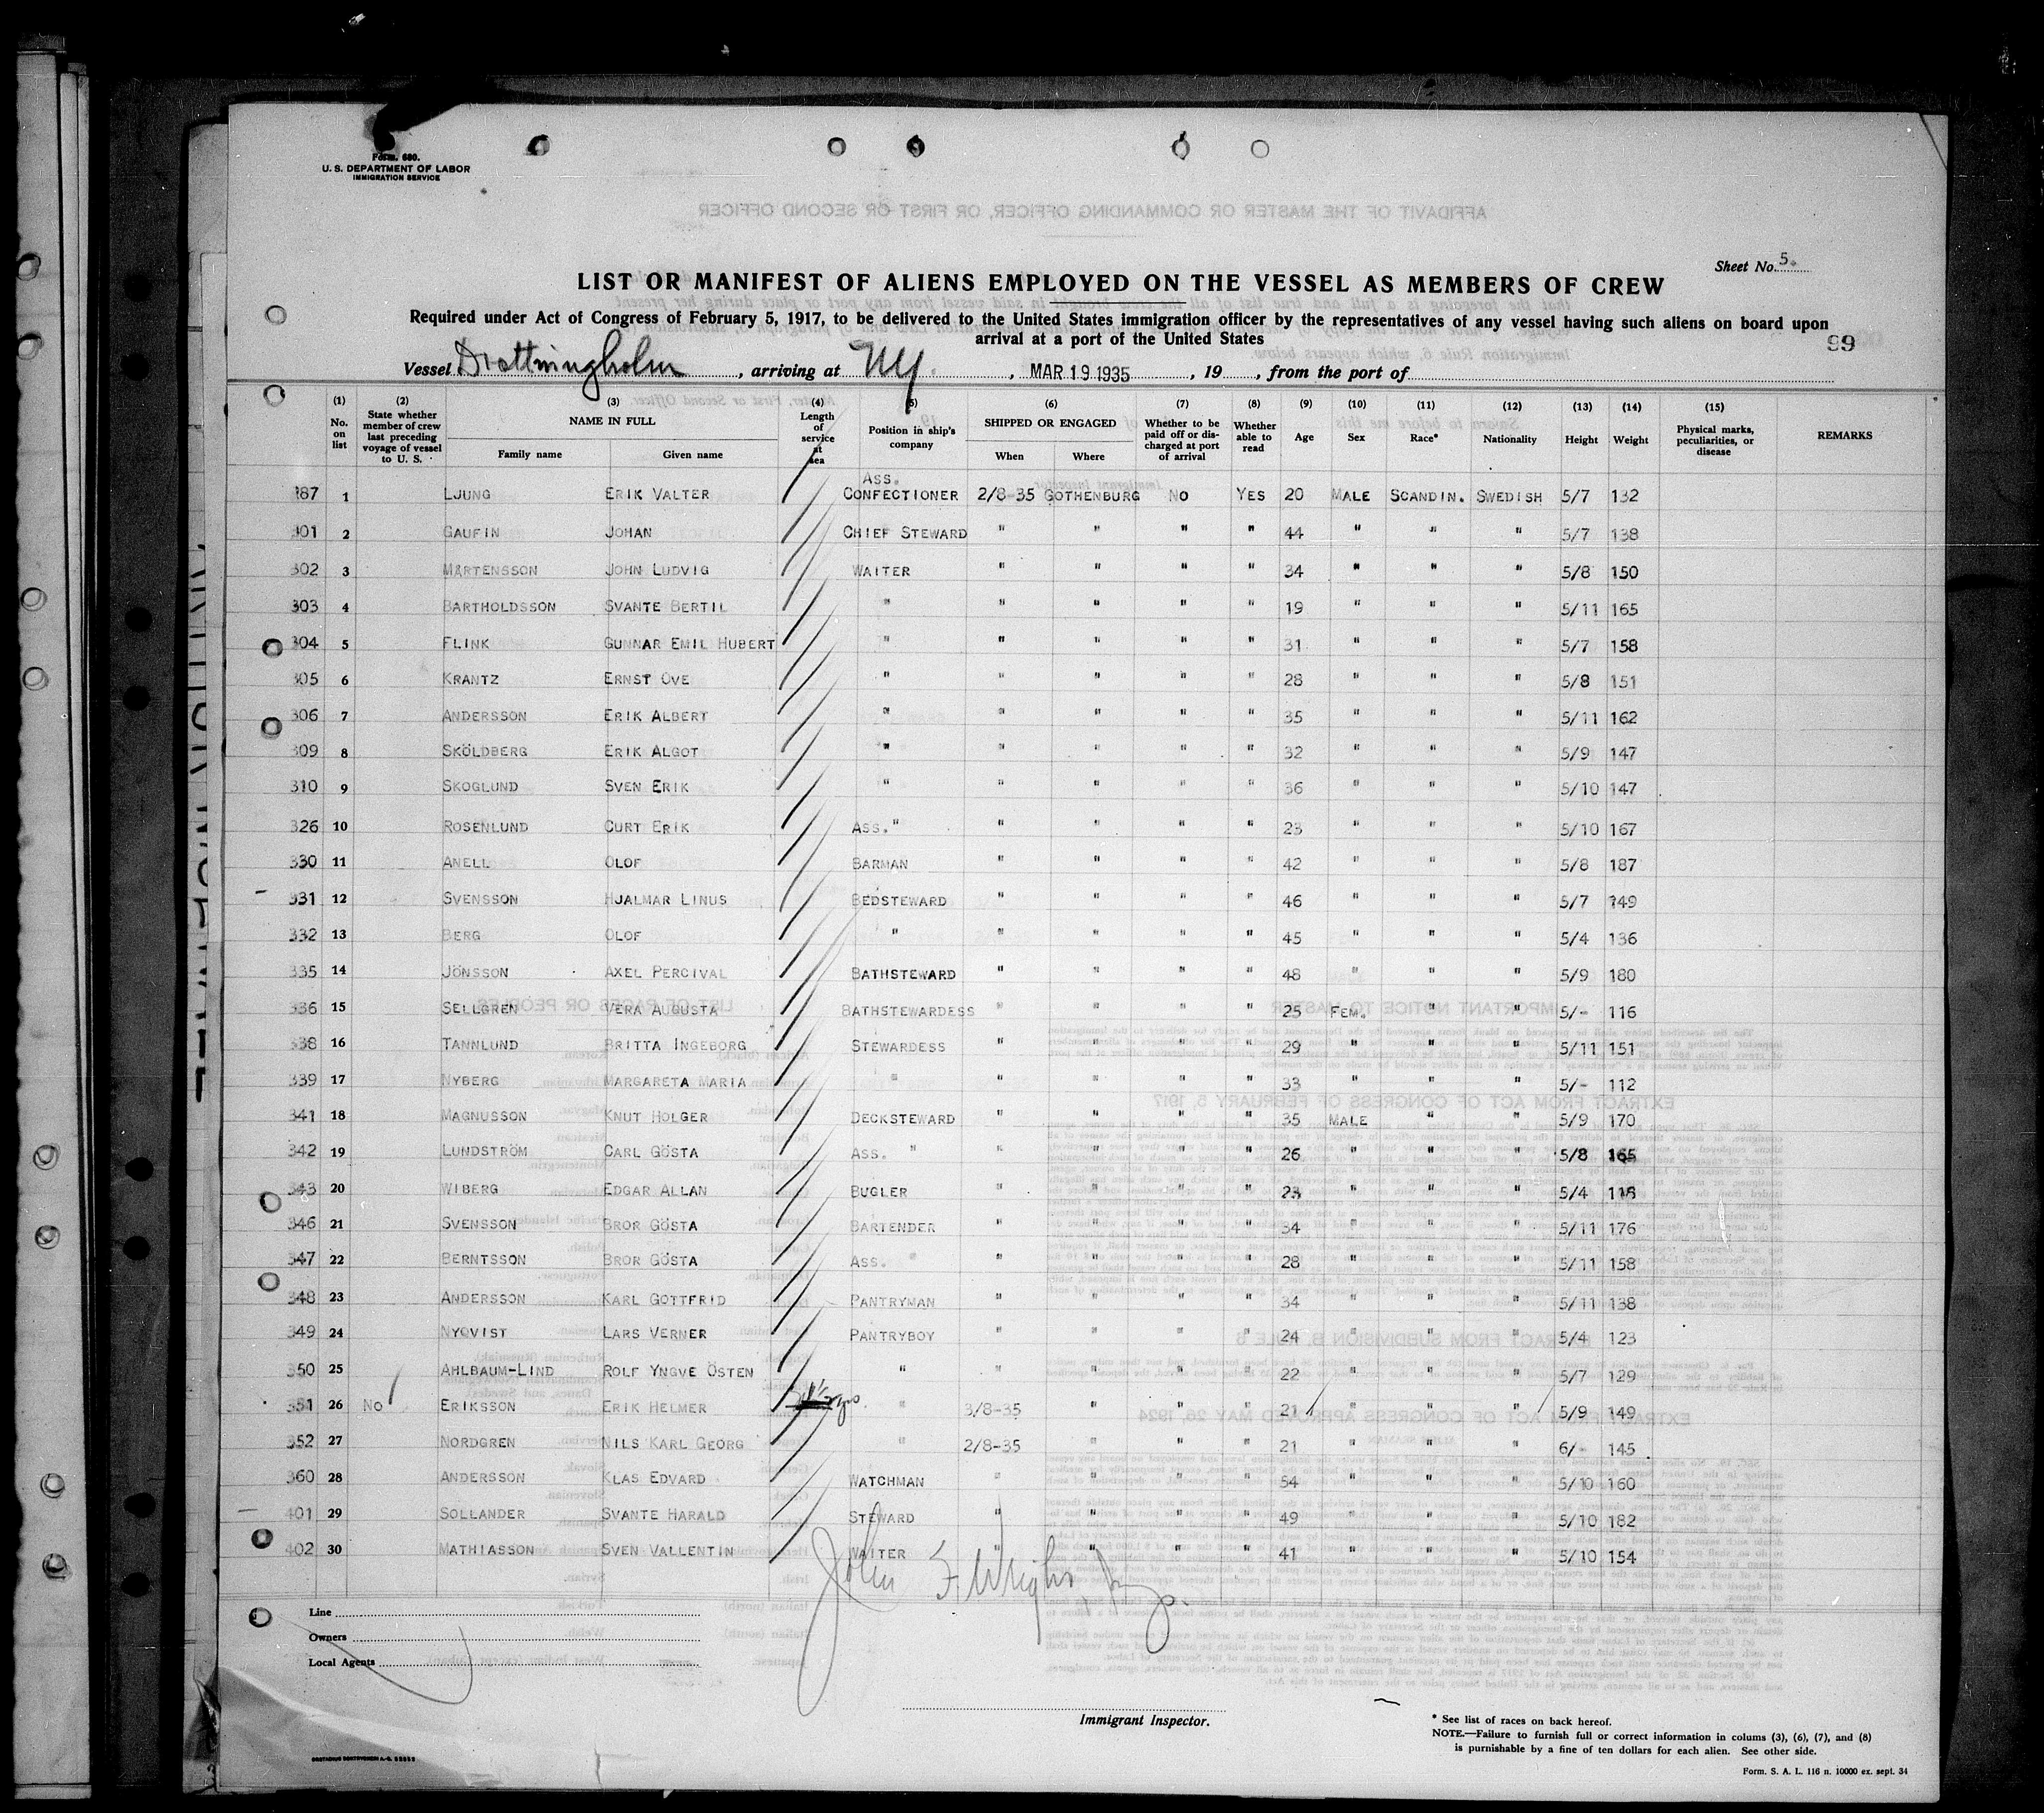 Form. 680.
U. S. DEPARTMENT OF LABOR
IMMIGRATION SERVICE
AFFIDAVIT OF THE MASTER OR COMMANDING OFFICER, OR FIRST OR SECOND OFFICER
Sheet No. 5.
LIST OR MANIFEST OF ALIENS EMPLOYED ON THE VESSEL AS MEMBERS OF CREW
Required under Act of Congress of February 5, 1917, to be delivered to the United States immigration officer by the representatives of any vessel having such aliens on board upon
arrival at a port of the United States
99
Vessel Drottningholm, arriving at NY., MAR 19 1935, 19, from the port of
(1) No. on list (2) State whether member of crew last preceding voyage of vessel to U. S. (3) NAME IN FULL Family name Given name (4) Length of service at sea (5) Position in ship's company (6) SHIPPED OR ENGAGED When Where (7) Whether to be paid off or discharged at port of arrival (8) Whether able to read (9) Age (10) Sex (11) Race* (12) Nationality (13) Height (14) Weight (15) Physical marks, peculiarities, or disease REMARKS
187 1 LJUNG ERIK VALTER ASS. CONFECTIONER 2/8-35 GOTHENBURG NO YES 20 MALE SCANDIN. SWEDISH 5/7 132
301 2 GAUFIN JOHAN CHIEF STEWARD " " " " 44 " " " 5/7 138
302 3 MÅRTENSSON JOHN LUDVIG WAITER " " " " 34 " " " 5/8 150
303 4 BARTHOLDSSON SVANTE BERTIL " " " " " 19 " " " 5/11 165
304 5 FLINK GUNNAR EMIL HUBERT " " " " " 31 " " " 5/7 158
305 6 KRANTZ ERNST OVE " " " " " 28 " " " 5/8 151
306 7 ANDERSSON ERIK ALBERT " " " " " 35 " " " 5/11 162
309 8 SKÖLDBERG ERIK ALGOT " " " " " 32 " " " 5/9 147
310 9 SKOGLUND SVEN ERIK " " " " " 36 " " " 5/10 147
326 10 ROSENLUND CURT ERIK ASS. " " " " " 23 " " " 5/10 167
330 11 ANELL OLOF BARMAN " " " " 42 " " " 5/8 187
331 12 SVENSSON HJALMAR LINUS BEDSTEWARD " " " " 46 " " " 5/7 149
332 13 BERG OLOF " " " " " 45 " " " 5/4 136
335 14 JÖNSSON AXEL PERCIVAL BATHSTEWARD " " " " 48 " " " 5/9 180
336 15 SELLGREN VERA AUGUSTA BATHSTEWARDESS " " " " 25 FEM. " " 5/- 116
338 16 TANNLUND BRITTA INGEBORG STEWARDESS " " " " 29 " " " 5/11 151
339 17 NYBERG MARGARETA MARIA " " " " " 33 " " " 5/- 112
341 18 MAGNUSSON KNUT HOLGER DECKSTEWARD " " " " 35 MALE " " 5/9 170
342 19 LUNDSTRÖM CARL GÖSTA ASS. " " " " " 26 " " " 5/8 165
343 20 WIBERG EDGAR ALLAN BUGLER " " " " 23 " " " 5/4
346 21 SVENSSON BROR GÖSTA BARTENDER " " " " 34 " " " 5/11 176
347 22 BERNTSSON BROR GÖSTA ASS. " " " " " 28 " " " 5/11 158
348 23 ANDERSSON KARL GOTTFRID PANTRYMAN " " " " 34 " " " 5/11 138
349 24 NYQVIST LARS VERNER PANTRYBOY " " " " 24 " " " 5/4 123
350 25 AHLBAUM-LIND ROLF YNGVE ÖSTEN " " " " " 22 " " " 5/7 129
351 26 NO ERIKSSON ERIK HELMER " 3/8-35 " " " 21 " " " 5/9 149
352 27 NORDGREN NILS KARL GEORG " 2/8-35 " " " 21 " " " 6/- 145
360 28 ANDERSSON KLAS EDVARD WATCHMAN " " " " 54 " " " 5/10 160
401 29 SOLLANDER SVANTE HARALD STEWARD " " " " 49 " " " 5/10 182
402 30 MATHIASSON SVEN VALLENTIN WAITER " " " " 41 " " " 5/10 154
John F. Wright
Line
Owners
Local Agents
Immigrant Inspector.
* See list of races on back hereof.
NOTE.—Failure to furnish full or correct information in colums (3), (6), (7), and (8)
is punishable by a fine of ten dollars for each alien. See other side.
Form. S. A. L. 116 n. 10000 ex. sept. 34